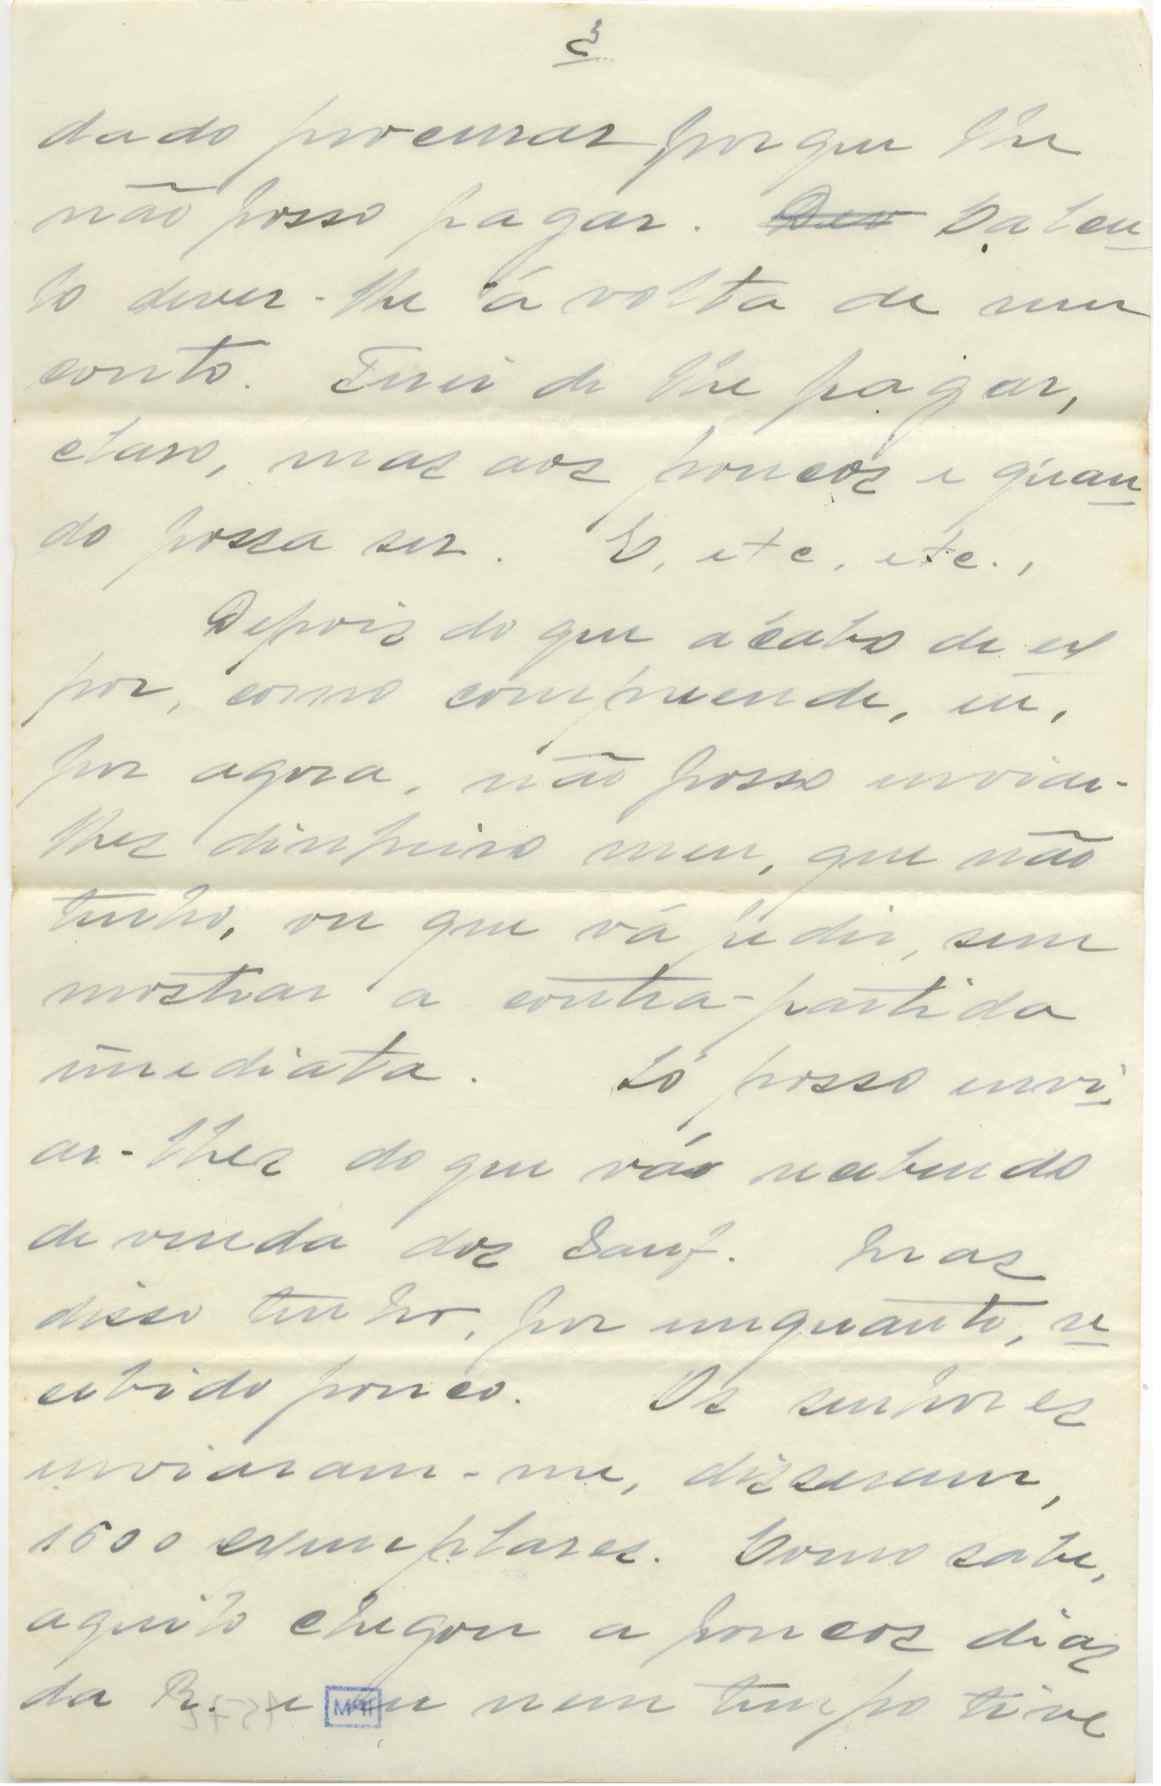 3
dado procurar porque lhe
não posso pagar. Dev Calcu-
lo dever-lhe á volta de um
conto. Terei de lhe pagar,
claro, mas aos poucos e quan
do possa ser. E, etc, etc.,
Depois do que acabo de ex
por, como compreende, eu,
por agora, não posso enviar-
lhes dinheiro meu, que não
tenho, ou que vá pedir, sem
mostrar a contra-partida
imediata. Só posso envi
ar-lhes do que vão recebendo
de venda dos Sauf. Mas
disso tenho, por enquanto, re
cebido pouco. Os senhores
enviaram-me, disseram,
1500 exemplares. Como sabe,
aquilo chegou a poucos dias
da R. e eu nem tempo tive